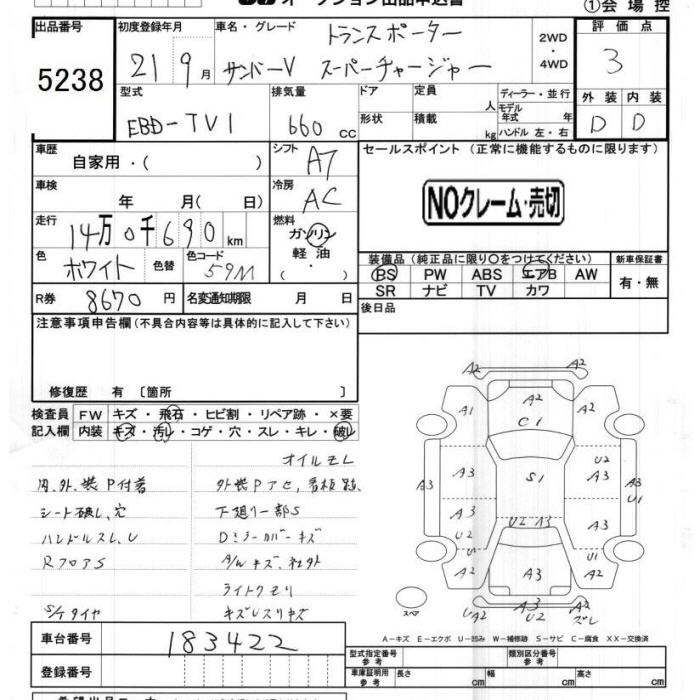 オークション出品申込書
①会場控
出品番号 初度登録年月 車名・グレード トランスポーター 2WD・4WD 評価点
5238 21 9月 サンバーV スーパーチャージャー 3
型式 排気量 ドア 定員 人 ディーラー・並行 外装 内装
EBD-TV1 660cc 形状 積載 kg モデル年式 年 ハンドル 左・右 D D
車歴 自家用・( ) シフト AT セールスポイント (正常に機能するものに限ります)
車検 年 月(日) 冷房 AC
NOクレーム・売切
走行 14万0千690km 燃料 ガソリン 軽油 ( ・ )
色 ホワイト 色替 色コード 59M
装備品 (純正品に限り○をつけてください) 新車保証書
PS PW ABS エアB AW 有・無
SR ナビ TV カワ
R券 8670円 名変通知期限 月 日 後日品
注意事項申告欄 (不具合内容等は具体的に記入して下さい)
修復歴 有 〔箇所 〕
検査員 FW キズ・飛石・ヒビ割・リペア跡・×要
記入欄 内装 キズ・汚れ・コゲ・穴・スレ・キレ・破れ
オイルモレ
内、外、装P付着 外装Pアセ、看板跡、
シート破レ、穴 下廻リ一部S
ハンドルスレ、U Dミラーカバーキズ
RフロアS A/Wキズ、社外
ライトクモリ
S/Tタイヤ キズレスリキズ
A2 A2
A1 A2 A2
C1
A3 A3 S1 U2 A3 A3 U1
A3 U2 A3 A2
U U
U1 A2 A3 A2
スペア UA2 U2 A2 ズレ
A-キズ E-エクボ U-凹み W-補修跡 S-サビ C-腐食 XX-交換済
車台番号 183422
型式指定番号 参考 類別区分番号 参考
登録番号 車庫証明用 参考 長さ cm 幅 cm 高さ cm
希望出品コーナー